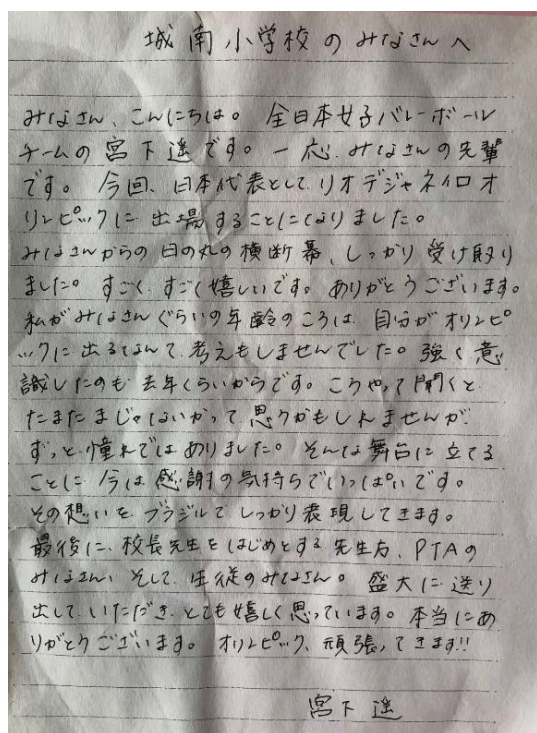 城南小学校のみなさんへ
みなさん、こんにちは。全日本女子バレーボール
チームの宮下遥です。一応、みなさんの先輩
です。今回、日本代表として、リオデジャネイロオ
リンピックに出場することになりました。
みなさんからの日の丸の横断幕、しっかり受け取り
ました。すごく、すごく嬉しいです。ありがとうございます。
私がみなさんぐらいの年齢のころは、自分がオリンピ
ックに出るなんて、考えもしませんでした。強く意
識したのも去年くらいからです。こうやって聞くと、
たまたまじゃないかって思うかもしれませんが、
ずっと憧れではありました。そんな舞台に立てる
ことに、今は感謝の気持ちでいっぱいです。
その想いを、ブラジルでしっかり表現してきます。
最後に、校長先生をはじめとする先生方、PTAの
みなさん、そして、生徒のみなさん。盛大に送り
出して、いただき、とても嬉しく思っています。本当にあ
りがとうございます。オリンピック、頑張ってきます!!
宮下 遥